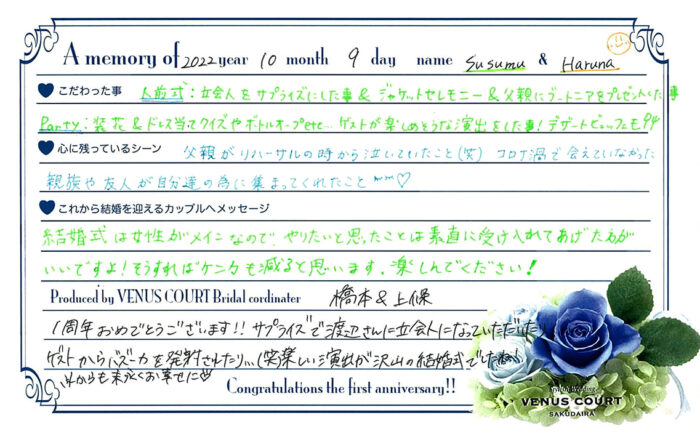 A memory of 2022 year 10 month 9 day name Susumu & Haruna
こだわった事 人前式：立会人をサプライズにした事&ジャケットセレモニー&父親にブートニアをプレゼントした事
Party：装花&ドレス当てクイズやボトルオープetc...ゲストが楽しめそうな演出をした事！デザートビュッフェも
心に残っているシーン 父親がリハーサルの時から泣いていたこと(笑) コロナ渦で会えていなかった
親族や友人が自分達の為に集まってくれたこと♡
これから結婚を迎えるカップルへメッセージ
結婚式は女性がメインなので、やりたいと思ったことは素直に受け入れてあげた方が
いいですよ！そうすればケンカも減ると思います。楽しんでください！
Produced by VENUS COURT Bridal cordinater 橋本&上保
1周年おめでとうございます!! サプライズで渡辺さんに立会人になっていただいたり
ゲストからバズーカを発射されたり...(笑)楽しい演出が沢山の結婚式でしたね
これからも末永くお幸せに♡
Congratulations the first anniversary!!
VENUS COURT
SAKUDAIRA